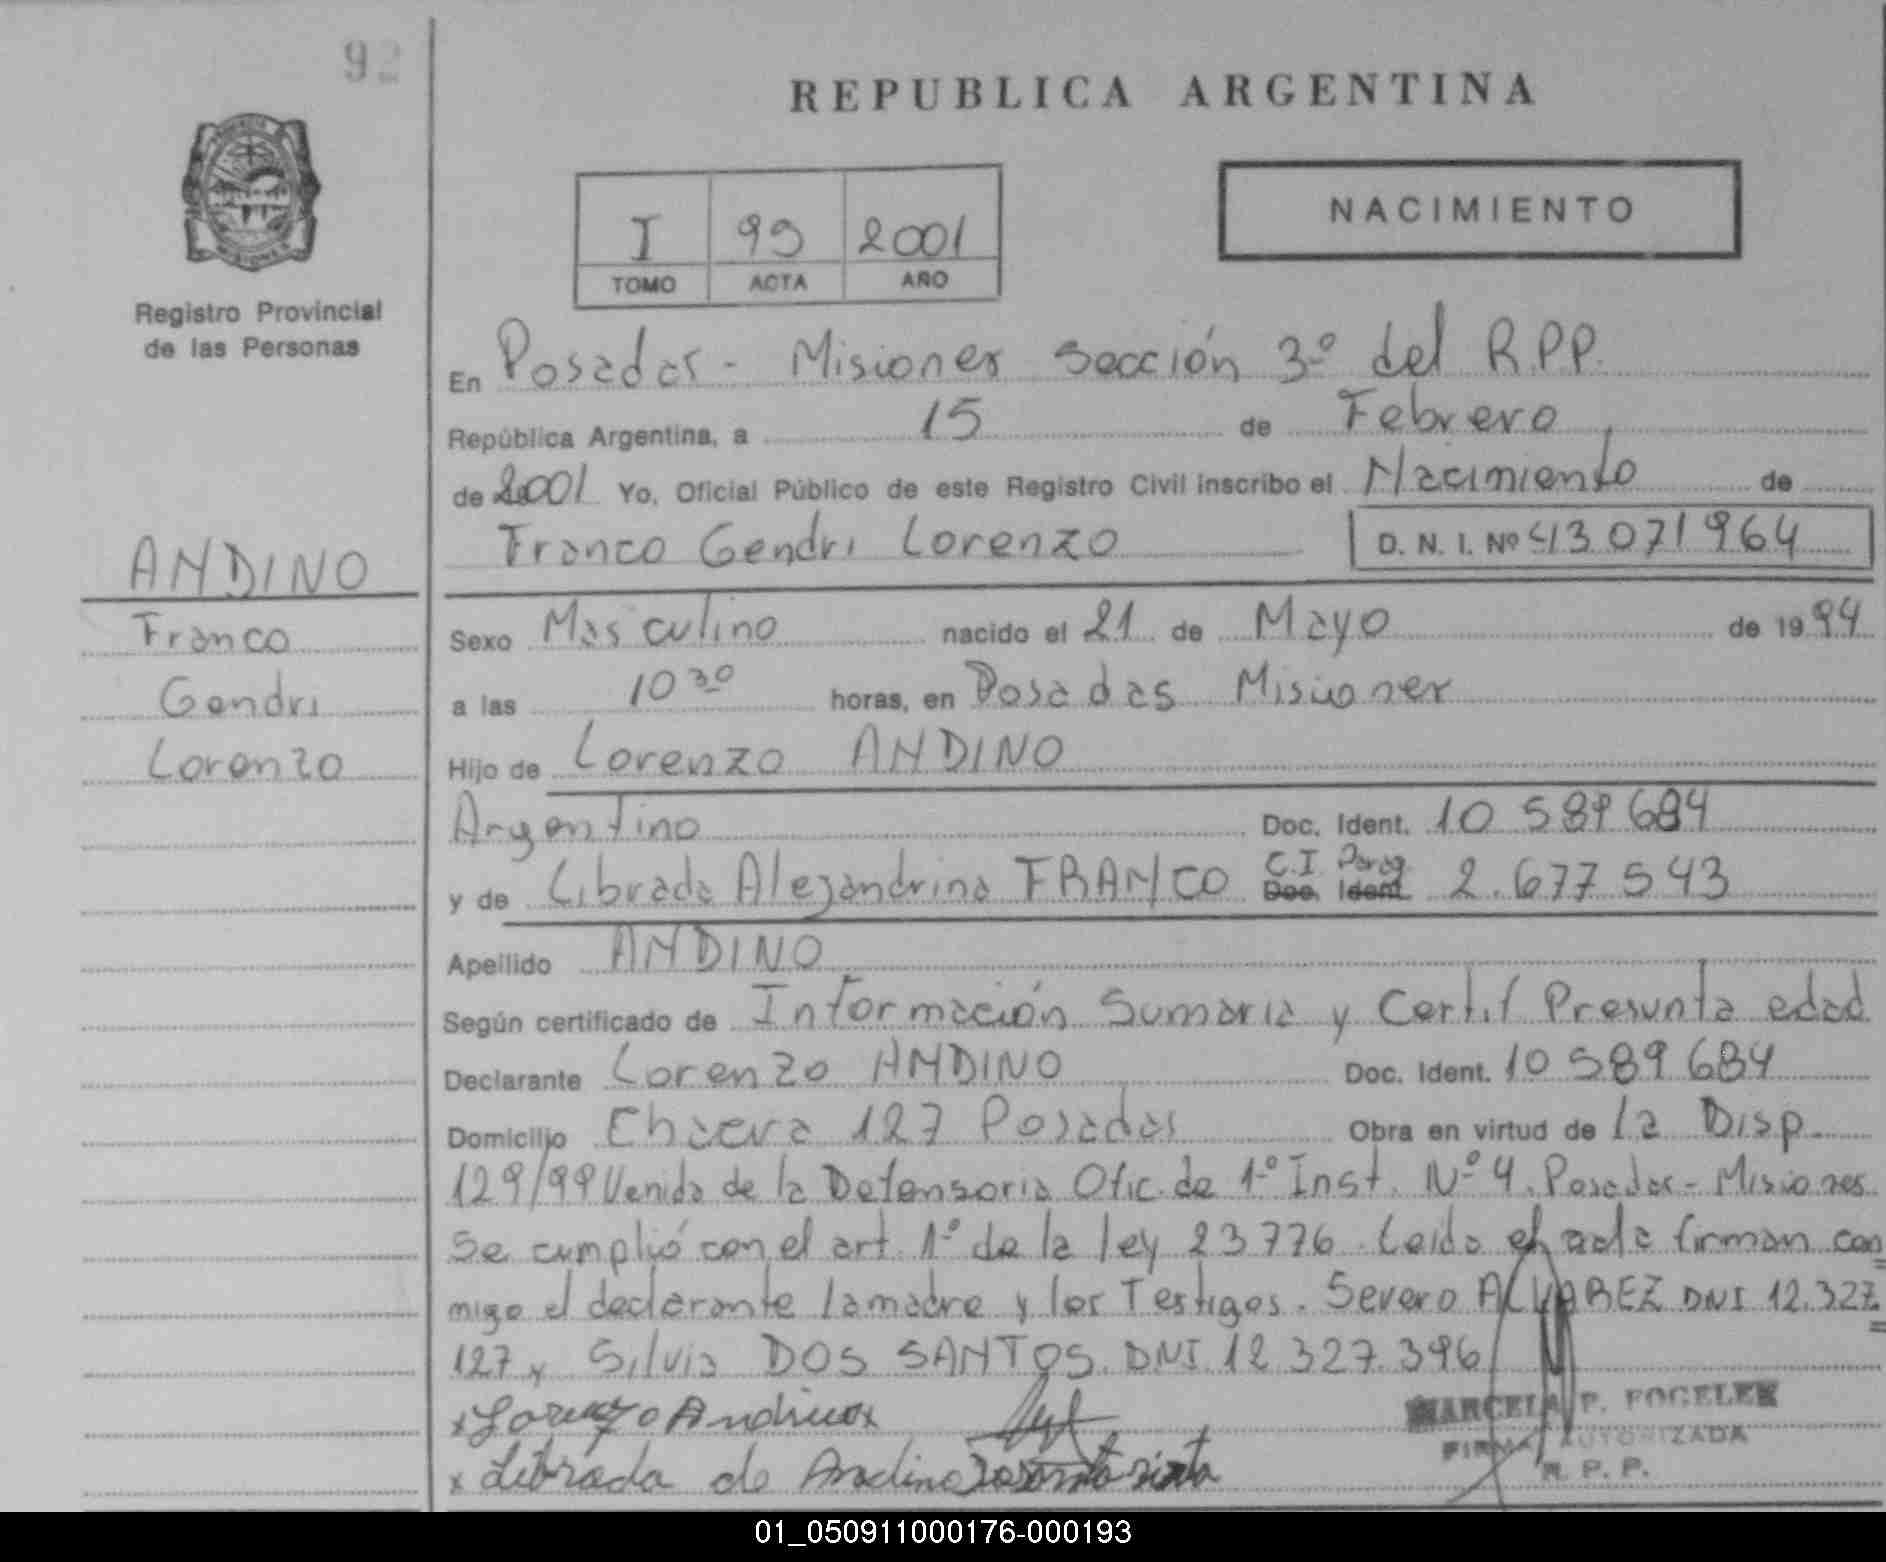 92
REPUBLICA ARGENTINA
I 99 2001
TOMO ACTA AÑO
NACIMIENTO
Registro Provincial
de las Personas
En Posadas - Misiones Sección 3º del R.P.P.
República Argentina, a 15 de Febrero
de 2001 Yo, Oficial Público de este Registro Civil inscribo el Nacimiento de
Franco Gendri Lorenzo D. N. I. Nº 43 071 964
ANDINO
Franco
Gendri
Lorenzo
Sexo Masculino nacido el 21 de Mayo de 1994
a las 10 30 horas, en Posadas Misiones
Hijo de Lorenzo ANDINO
Argentino Doc. Ident. 10 589 684
y de Librada Alejandrina FRANCO C.I. Parag Doc. Ident. 2.677 543
Apellido ANDINO
Según certificado de Información Sumaria y Certif Presunta edad
Declarante Lorenzo ANDINO Doc. Ident. 10 589 684
Domicilio 127 Posadas Obra en virtud de la Disp.
129/99 Venida de la Defensoria Ofic. de 1º Inst. Nº 4. Posadas - Misiones
Se cumplió con el art. 1º de la ley 23776. Leida el acta firman con
migo el declarante la madre y los Testigos. Severo ALVAREZ DNI 12.327.
127 y Silvia DOS SANTOS. DNI 12 327 396
x Lorenzo Andino x
x Librada de Andino
MARCELA P. FOGELER
FIRMA AUTORIZADA
R. P. P.
01_050911000176-000193